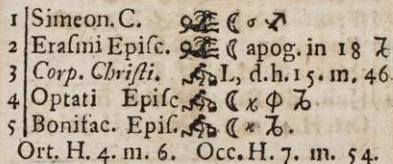 1 Simeon. C. ☾ σ ♐
2 Eraſmi Epiſc. ☾ apog. in 18 ♑
3 Corp. Chriſti. L, d.h.15. m. 46
4 Optati Epiſc. ☾ ɣ Ф ♑
5 Bonifac. Epiſ. ☾ ⚹ ♑.
Ort. H. 4. m. 6. Occ. H. 7. m. 54.